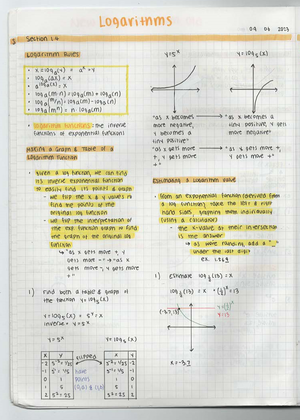 Logarithms
09 06 2013
Section 1.4
Logarithm Rules
• x = log_a(y) = a^x = y
• log_a(a^x) = x
• a^log_a(x) = x
• log_a(m·n) = log_a(m) + log_a(n)
• log_a(m/n) = log_a(m) - log_a(n)
• log_a(m^n) = n log_a(m)
• logarithmic functions: the inverse
of exponential functions
Making a Graph & Table of a
Logarithm Function
• given a log function, we can find
its inverse exponential function
to easily find its points & graph
• we flip the x & y values to
find the points of the
original log function
• we flip the interpretation of
the exp function graph to find
the graph of the original log
function
"as x gets more +, y
gets more -" → "as x
gets more -, y gets more
+"
1) Find both a table & graph of
the function y = log₅(x)
y = log₅(x) = 5^y = x
inverse = y = 5^x
y = 5^x
y = log₅(x)
x y flipped x y
same
points
y = 5^x
y = log₅(x)
"as x becomes
more negative,
y becomes a
tiny positive"
"as x becomes a
tiny positive, y gets
more negative"
"as x gets more
+, y gets more
+"
"as y gets more +,
x gets more +"
Estimating a Logarithm Value
• from an exponential function (derived from
a log function), take the left & right
hand sides, graphing them individually
(using a calculator)
• the x-value at their intersection
is the answer
1) estimate
y = 13
x = -3.7